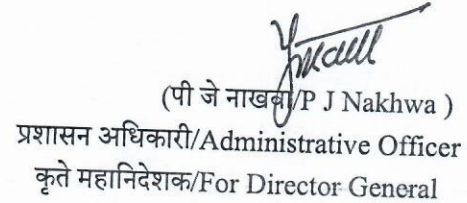 (पी जे नाखवा/P J Nakhwa )
प्रशासन अधिकारी/Administrative Officer
कृते महानिदेशक/For Director General